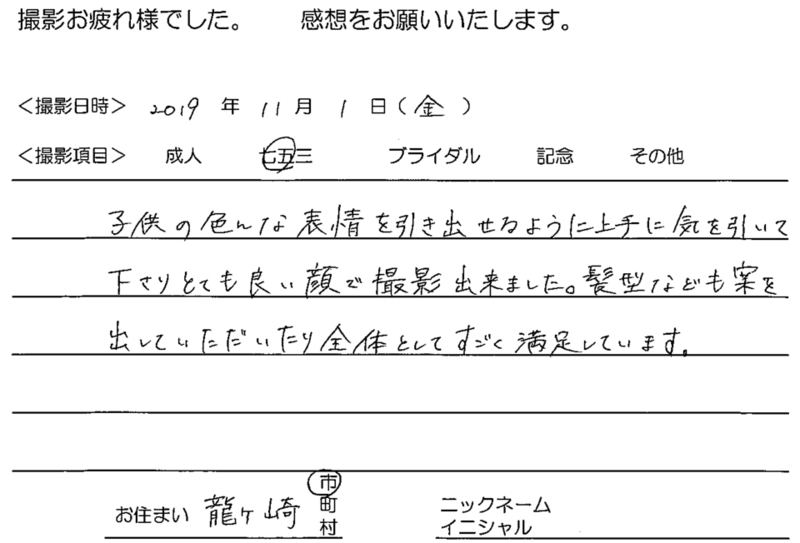 撮影お疲れ様でした。　感想をお願いいたします。
＜撮影日時＞ 2019 年 11 月 1 日（金）
＜撮影項目＞ 成人 七五三 ブライダル 記念 その他
子供の色んな表情を引き出せるように上手に気を引いて
下さりとても良い顔で撮影出来ました。髪型なども案を
出していただいたり全体としてすごく満足しています。
お住まい 龍ヶ崎 市町村 ニックネーム イニシャル